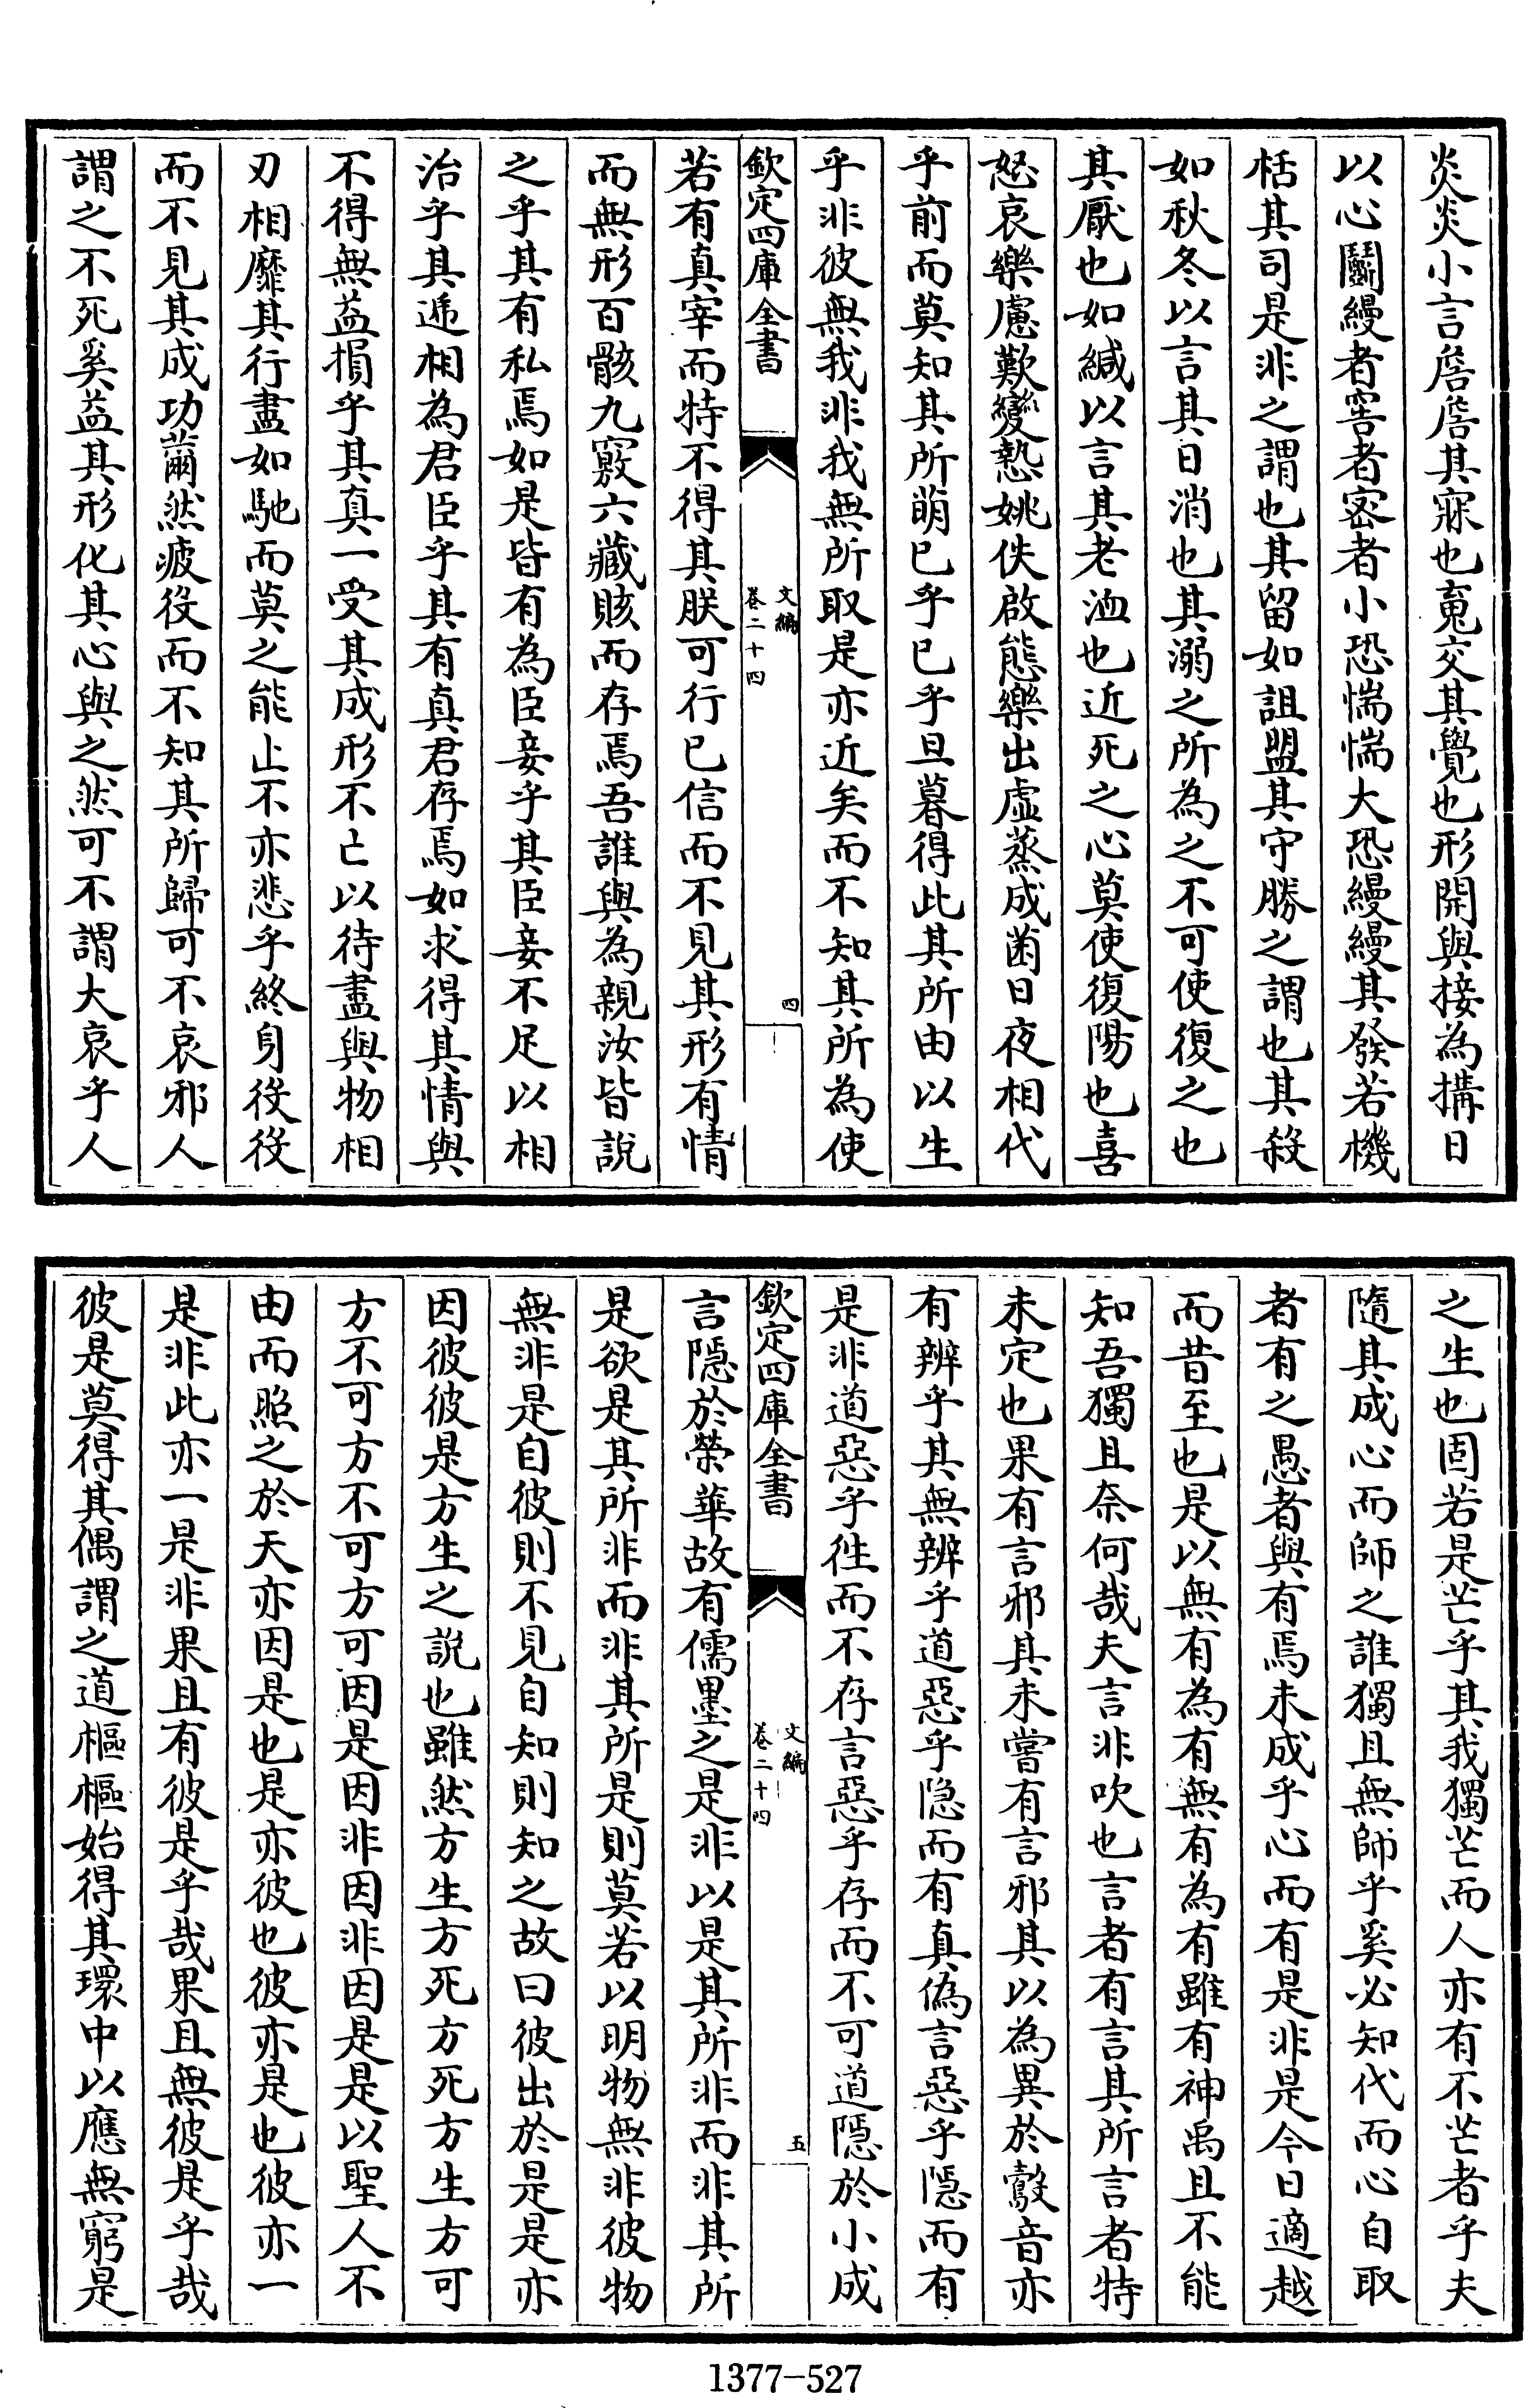 炎炎小言詹詹其寐也䰟交其覺也形開與接為搆日
以心鬭縵者窖者宻者小恐惴惴大恐縵縵其發若機
栝其司是非之謂也其留如詛盟其守勝之謂也其殺
如秋冬以言其日消也其溺之所為之不可使復之也
其厭也如緘以言其老洫也近死之心莫使復陽也喜
怒哀樂慮歎變慹姚佚啟態樂出虛蒸成菌日夜相代
乎前而莫知其所萌已乎已乎旦暮得此其所由以生
乎非彼無我非我無所取是亦近矣而不知其所為使
欽定四庫全書
文編
卷二十四
四
若有真宰而特不得其朕可行已信而不見其形有情
而無形百骸九竅六藏賅而存焉吾誰與為親汝皆說
之乎其有私焉如是皆有為臣妾乎其臣妾不足以相
治乎其遞相為君臣乎其有真君存焉如求得其情與
不得無益損乎其真一受其成形不亡以待盡與物相
刃相靡其行盡如馳而莫之能止不亦悲乎終身役役
而不見其成功薾然疲役而不知其所歸可不哀邪人
謂之不死奚益其形化其心與之然可不謂大哀乎人
之生也固若是芒乎其我獨芒而人亦有不芒者乎夫
隨其成心而師之誰獨且無師乎奚必知代而心自取
者有之愚者與有焉未成乎心而有是非是今日適越
而昔至也是以無有為有無有為有雖有神禹且不能
知吾獨且奈何哉夫言非吹也言者有言其所言者特
未定也果有言邪其未嘗有言邪其以為異於鷇音亦
有辨乎其無辨乎道惡乎隠而有真偽言惡乎隠而有
是非道惡乎徃而不存言惡乎存而不可道隠於小成
欽定四庫全書
文編
卷二十四
五
言隠於榮華故有儒墨之是非以是其所非而非其所
是欲是其所非而非其所是則莫若以明物無非彼物
無非是自彼則不見自知則知之故曰彼出於是是亦
因彼彼是方生之說也雖然方生方死方死方生方可
方不可方不可方可因是因非因非因是是以聖人不
由而照之於天亦因是也是亦彼也彼亦是也彼亦一
是非此亦一是非果且有彼是乎哉果且無彼是乎哉
彼是莫得其偶謂之道樞樞始得其環中以應無窮是
1377-527